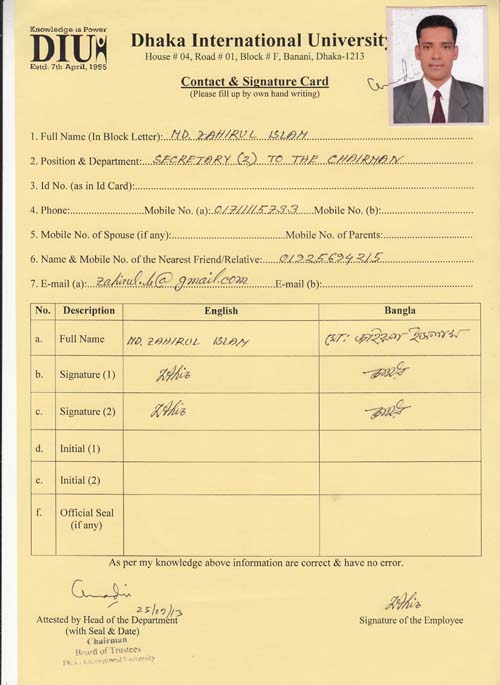 Knowledge is Power
DIU
Estd. 7th April, 1995
Dhaka International University
House # 04, Road # 01, Block # F, Banani, Dhaka-1213
Contact & Signature Card
(Please fill up by own hand writing)
1. Full Name (In Block Letter): MD. ZAHIRUL ISLAM
2. Position & Department: SECRETARY (2) TO THE CHAIRMAN
3. Id No. (as in Id Card):
4. Phone: Mobile No. (a): 01711115733 Mobile No. (b):
5. Mobile No. of Spouse (if any): Mobile No. of Parents:
6. Name & Mobile No. of the Nearest Friend/Relative: 01925694215
7. E-mail (a): @gmail.com E-mail (b):
No. Description English Bangla
a. Full Name MD. ZAHIRUL ISLAM মো: জহিরুল ইসলাম
b. Signature (1)
c. Signature (2)
d. Initial (1)
e. Initial (2)
f. Official Seal
(if any)
As per my knowledge above information are correct & have no error.
Attested by Head of the Department
(with Seal & Date)
Signature of the Employee
Chairman
Board of Trustees
Dhaka International University